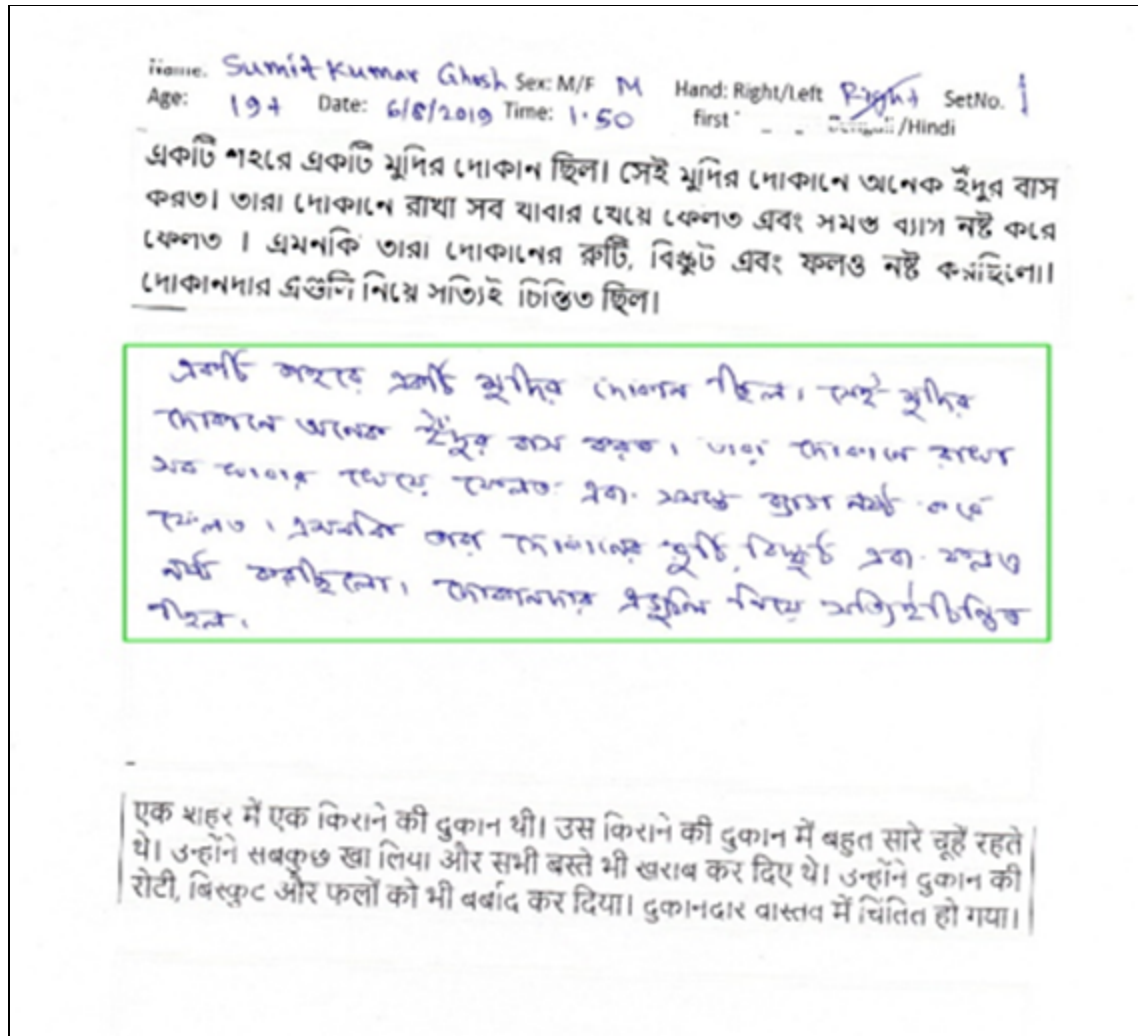 Name. Sumit Kumar Ghosh Sex: M/F M Hand: Right/Left Right SetNo. 1
Age: 19+ Date: 6/8/2019 Time: 1.50 first /Hindi
একটি শহরে একটি মুদির দোকান ছিল। সেই মুদির দোকানে অনেক ইঁদুর বাস
করত। তারা দোকানে রাখা সব খাবার খেয়ে ফেলত এবং সমস্ত ব্যাগ নষ্ট করে
ফেলত । এমনকি তারা দোকানের রুটি, বিস্কুট এবং ফলও নষ্ট করছিলো।
দোকানদার এগুলি নিয়ে সত্যিই চিন্তিত ছিল।
একটি শহরে একটি মুদির দোকান ছিল। সেই মুদির
দোকানে অনেক ইঁদুর বাস করত। তারা দোকানে রাখা
সব খাবার খেয়ে ফেলত এবং সমস্ত ব্যাগ নষ্ট করে
ফেলত। এমনকি তারা দোকানের রুটি, বিস্কুট এবং ফলও
নষ্ট করছিলো। দোকানদার এগুলি নিয়ে সত্যিই চিন্তিত
ছিল।
एक शहर में एक किराने की दुकान थी। उस किराने की दुकान में बहुत सारे चूहें रहते
थे। उन्होंने सबकुछ खा लिया और सभी बस्ते भी खराब कर दिए थे। उन्होंने दुकान की
रोटी, बिस्कुट और फलों को भी बर्बाद कर दिया। दुकानदार वास्तव में चिंतित हो गया।